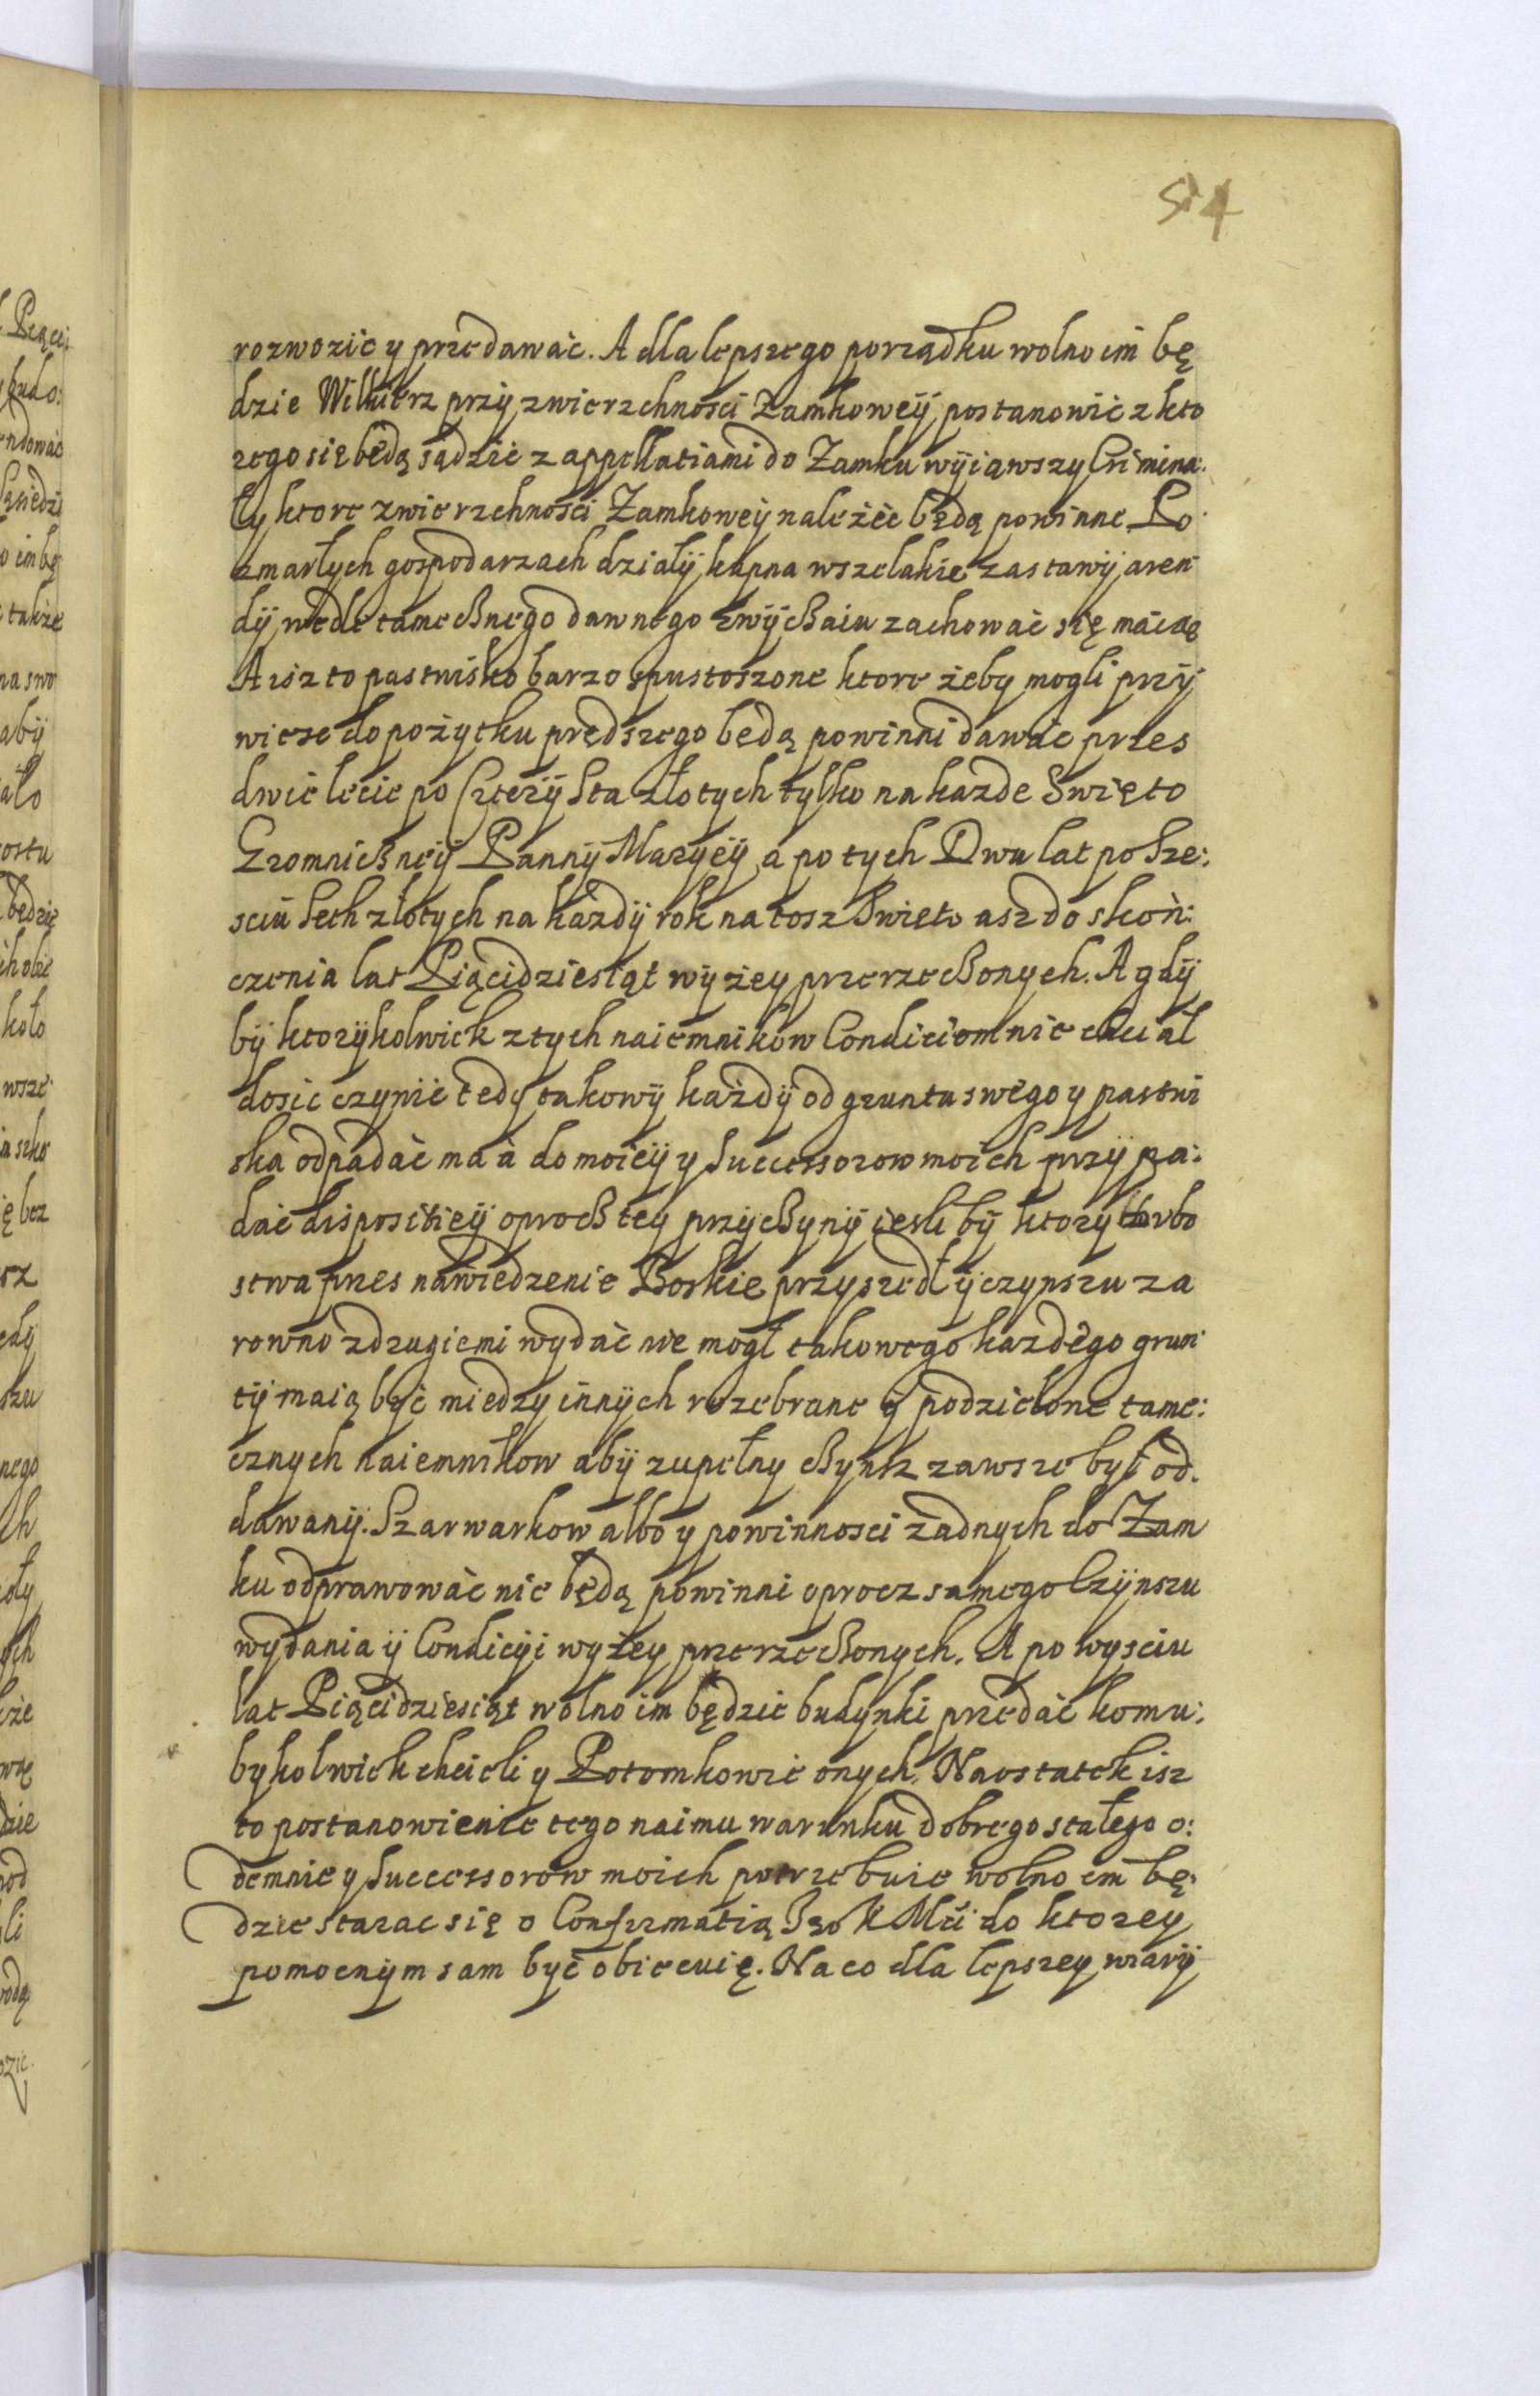 54
rozwozic y przedawać. A dla lepszego porządku wolno im bę
dzie Wilkierz przÿ zwierzchnosci Zamkoweÿ postanowić z kto
rego się będą sądzić z appellatiami do Zamku wÿiąwszy Crimina:
ly ktore zwierzchnosci Zamkoweÿ należéc będą powinne Po
zmarłych gospodarzach działÿ, kupna wszelakie zastawÿ, aren
dÿ, wedle tamecznego dawnego zwÿczaiu zachować się maią
A isz to pastwisko barzo spustoszone ktore żeby mogli przÿ
wiesc do pożytku prędszego będą powinni dawać przes
dwie lecie po Czterÿ Sta złotych tylko na kazde Swięto
Gromniczneÿ Pannÿ Maryeÿ, a po tych Dwu lat po Sze:
sciu Seth złotych na każdÿ rok na tosz Swięto asz do skoń:
czenia lat Piącidziesiąt wÿżey przerzeczonych. A gdÿ
bÿ ktorÿkolwiek z tych naiemnikow Condiciom nie chciał
dosic czynić tedy takowÿ każdÿ od gruntu swego y pastwi
ska odpadać ma a do moieÿ y Successorow moich przÿpa:
dać dispositieÿ oprocz tey przÿczynÿ iesli bÿ ktory w vbo
stwa przes nawiedzenie Boskie przyszedł ÿ czynszu za
rowno z drugiemi wydać nie mogł takowego kazdego grun
tÿ maią być miedzy innÿch rozebrane ÿ podzielone tame:
cznych naiemnikow abÿ zupełny czynsz zawsze był od.
dawanÿ. Szarwarkow albo y powinnosci żadnych do Zam
ku odprawować nie będą powinni oprocz samego Czÿnszu
wydania ÿ Condicÿi wyżey przerzeczonych. A po wysciu
lat Piącidziesiąt wolno im będzie budynki przedać komu:
bykolwiek chcieli y Potomkowie onych. Naostatek isz
to postanowienie tego naimu warunku dobrego stałego o:
demnie y Successorow moich potrzebuie wolno im bę.
dzie starac się o Confirmatią Jeo K Mći do ktorey
pomocnÿm sam być obiecuię. Na co dla lepszey wiarÿ